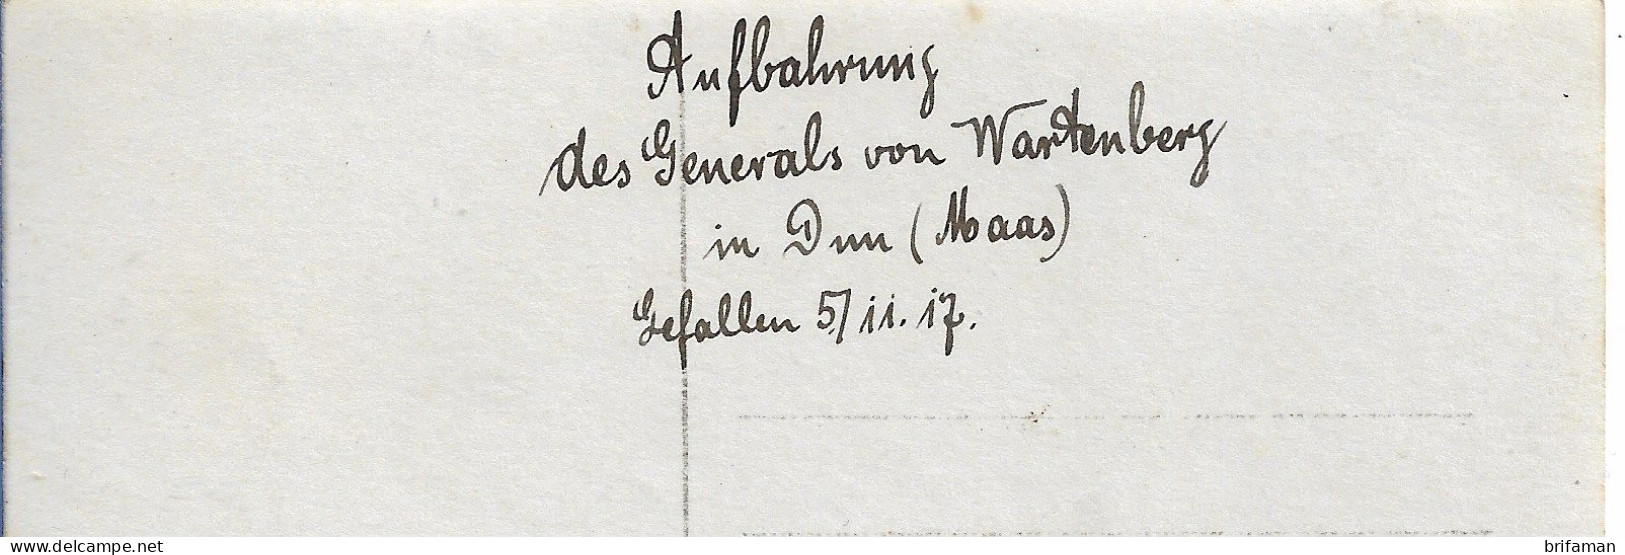 Aufbahrung
des Generals von Wartenberg
in Dun (Maas)
Gefallen 5/11.17.
delcampe.net
brifaman